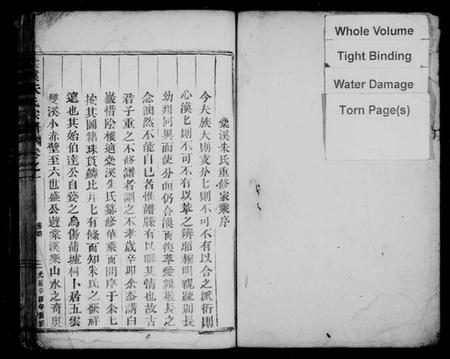 Whole Volume
Tight Binding
Water Damage
Torn Page(s)
棠溪朱氏重修家乘序
今夫族大則支分匕則不可不有以合之派衍則
心渙匕則不可不有以萃之辨昭穆明親疏別長
幼判同異而使分而仍合渙而復萃愛親敬長之
念油然不能自已者惟譜牒有以聯其情也故古
君子重之不修譜者謂之不孝歲辛卯余齋講白
巖惜陰樓適棠溪朱氏纂修華乘而問序于余匕
按其圖籍珠貫鱗比井匕有條而知朱氏之發祥
遠也其始伯達公自婺之烏傷蒲墟村卜居五雲
雙溪小赤壁至六世盛公遊棠溪樂山水之奇奧